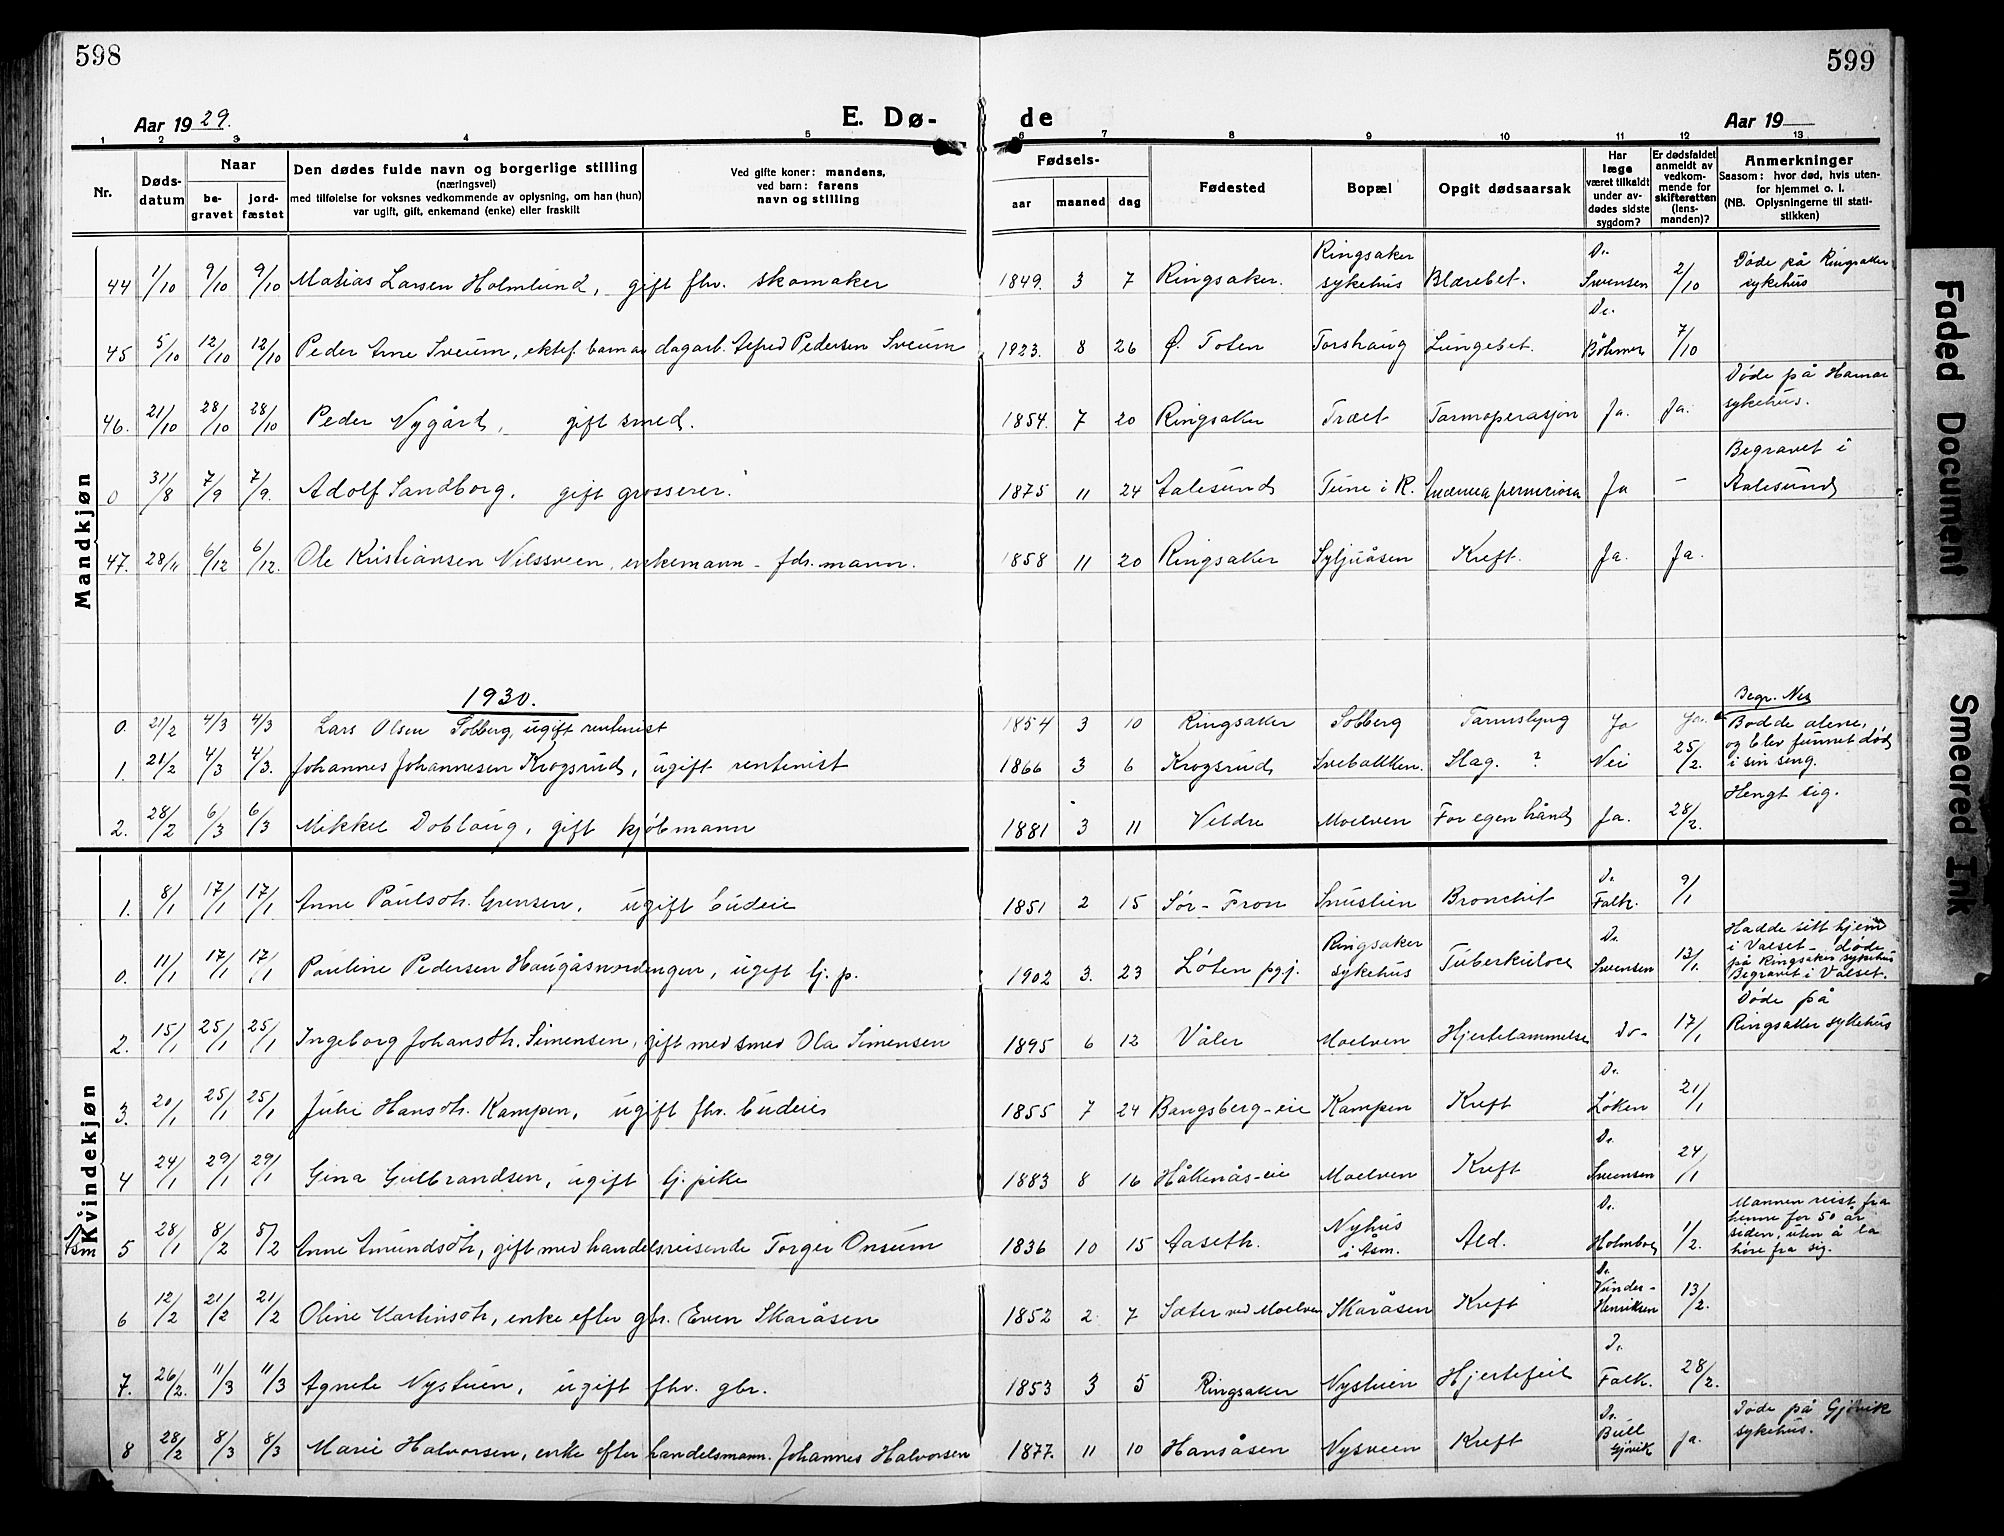 598
599
Aar 1929.
E. Dø-
de
Aar 19
1 2 3 4 5 6 7 8 9 10 11 12 13
Nr.
Døds-
datum
Naar
be-
gravet
jord-
fæstet
Den dødes fulde navn og borgerlige stilling
(næringsvei)
med tilføielse for voksnes vedkommende av oplysning, om han (hun)
var ugift, gift, enkemand (enke) eller fraskilt
Ved gifte koner: mandens,
ved barn: farens
navn og stilling
Fødsels-
aar maaned dag
Fødested
Bopæl
Opgit dødsaarsak
Har
læge
været tilkaldt
under av-
dødes sidste
sygdom?
Er dødsfaldet
anmeldt av
vedkom-
mende for
skifteretten
(lens-
manden)?
Anmerkninger
Saasom: hvor død, hvis uten-
for hjemmet o. l.
(NB. Oplysningerne til stati-
stikken)
Mandkjøn
44 1/10 9/10 9/10 Matias Larsen Holmlund, gift fhv. skomaker 1849. 3 7 Ringsaker. Ringsaker sykehus Blærebet. Dr. Svensen 2/10 Døde på Ringsaker sykehus
45 5/10 12/10 12/10 Peder Arne Sveum, ektef. barn av dagarb. Alfred Pedersen Sveum 1923. 8 26 Ø. Toten Torshaug Lungebet. Dr. Böhmer 7/10
46. 21/10 28/10 28/10 Peder Nygård, gift smed. 1854. 7 20 Ringsaker Træet Tarmoperasjon Ja. Ja. Døde på Hamar sykehus.
0 31/8 7/9 7/9. Adolf Sandborg, gift grosserer. 1875 11 24 Aalesund Tune i R. perniciosa Ja - Begravet i Aalesund
47. 28/11 6/12 6/12. Ole Kristiansen Nilssveen, enkemann - fdr. mann. 1858 11 20 Ringsaker Syljuåsen Kreft. Ja. Ja.
1930.
0. 21/2 4/3 4/3 Lars Olsen Solberg, ugift rentenist 1854 3 10 Ringsaker Solberg Tarmslyng Ja Ja. Begr. Nes
1. 21/2 4/3 4/3. Johannes Johannesen Krogsrud, ugift rentenist 1866 3 6 Krogsrud Svebakken. Slag. ? Nei 25/2. Bodde alene, og blev funnet død i sin seng.
2. 28/2 6/3 6/3 Mikkel Dobloug, gift kjøbmann 1881 3 11 Veldre Moelven For egen hånd Ja. 28/2. Hengt sig.
Kvindekjøn
1. 8/1 17/1 17/1 Anne Paulsdtr. Grensen, ugift budeie 1851 2 15 Sør-Fron Snustien Bronchit Dr. Falk. 9/1
0. 11/1 17/1 17/1 Pauline Pedersen Haugåsnordengen, ugift tj. p. 1902 3. 23 Løten pgj. Ringsaker sykehus Tuberkulose Dr. Svensen 13/1. Hadde sitt hjem i Valset - døde på Ringsaker sykehus Begravet i Valset.
2. 15/1 25/1 25/1 Ingeborg Johansdtr. Simensen, gift med smed Ola Simensen 1895 6 12 Våler Moelven Hjertelammelse Do- 17/1 Døde på Ringsaker sykehus
3. 20/1 25/1 25/1 Julie Hansdtr. Kampen, ugift fhv. budeie 1855 7 24 Bangsberg-eie Kampen Kreft Dr. Løken 21/1
4 24/1 29/1 29/1 Gina Gulbrandsen, ugift tj. pike 1883 8 16 Håkenås-eie Moelven Kreft Dr. Svensen 24/1
Åsm 5 28/1 8/2 5/2 Anne Amundsdtr, gift med handelsreisende Torger Onsum 1836 10 15 Aaseth. Nyhus i Åsm. Ald. Dr. Holmboe 1/2. Mannen reist fra henne for 50 år siden, uten å la høre fra sig.
6 12/2 21/2 21/2 Oline Martinsdtr, enke efter gbr. Even Skaråsen 1852 2. 7 Sæter ved Moelven Skaråsen Kreft Dr. Henriksen 13/2.
7. 26/2. 11/3 11/3 Agnete Nystuen, ugift fhv. gbr. 1853 3 5 Ringsaker Nystuen Hjertefeil Dr. Falk. 28/2.
8 28/2 8/3 8/3 Marie Halvorsen, enke efter handelsmann. Johannes Halvorsen 1877. 11 10 Hansåsen Nysveen Kreft Dr. Bull Gjøvik Ja. Døde på Gjøvik sykehus.
Faded Document
Smeared Ink